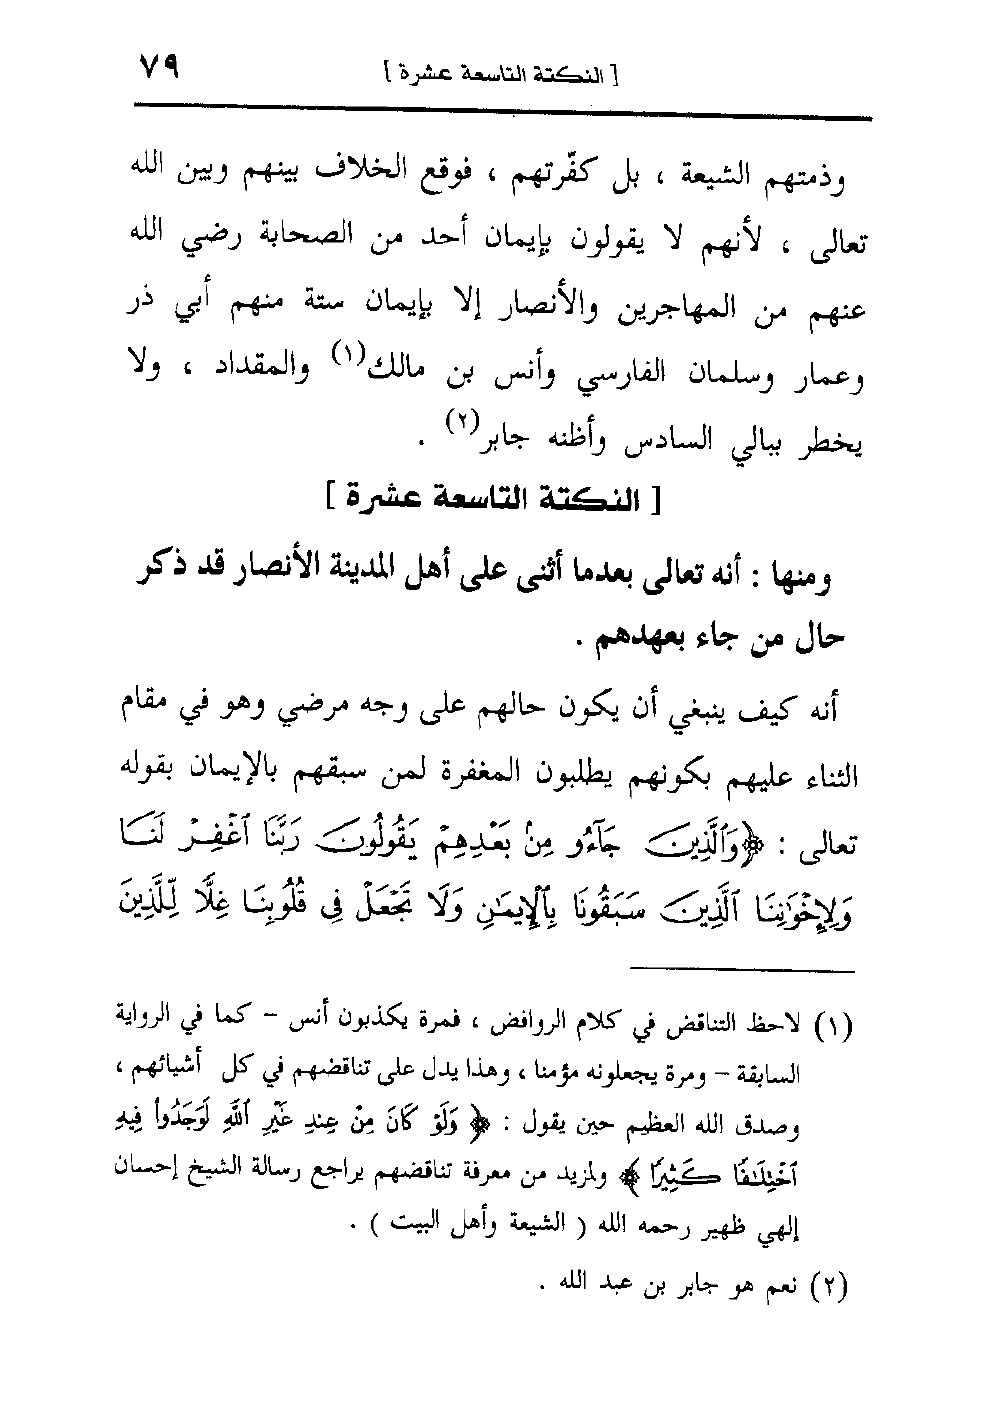 [ النكتة التاسعة عشرة ] ٧٩
وذمتهم الشيعة ، بل كفّرتهم ، فوقع الخلاف بينهم وبين الله
تعالى ، لأنهم لا يقولون بإيمان أحد من الصحابة رضي الله
عنهم من المهاجرين والأنصار إلا بإيمان ستة منهم أبي ذر
وعمار وسلمان الفارسي وأنس بن مالك(١) والمقداد ، ولا
يخطر ببالي السادس وأظنه جابر(٢) .
[ النكتة التاسعة عشرة ]
ومنها : أنه تعالى بعدما أثنى على أهل المدينة الأنصار قد ذكر
حال من جاء بعهدهم .
أنه كيف ينبغي أن يكون حالهم على وجه مرضي وهو في مقام
الثناء عليهم بكونهم يطلبون المغفرة لمن سبقهم بالإيمان بقوله
تعالى : ﴿وَٱلَّذِينَ جَآءُو مِنۢ بَعْدِهِمْ يَقُولُونَ رَبَّنَا ٱغْفِرْ لَنَا
وَلِإِخْوَٰنِنَا ٱلَّذِينَ سَبَقُونَا بِٱلْإِيمَٰنِ وَلَا تَجْعَلْ فِى قُلُوبِنَا غِلًّا لِّلَّذِينَ
(١) لاحظ التناقض في كلام الروافض ، فمرة يكذبون أنس - كما في الرواية
السابقة - ومرة يجعلونه مؤمنا ، وهذا يدل على تناقضهم في كل أشيائهم ،
وصدق الله العظيم حين يقول : ﴿ وَلَوْ كَانَ مِنْ عِندِ غَيْرِ ٱللَّهِ لَوَجَدُوا۟ فِيهِ
ٱخْتِلَٰفًا كَثِيرًا ﴾ ولمزيد من معرفة تناقضهم يراجع رسالة الشيخ إحسان
إلهي ظهير رحمه الله ( الشيعة وأهل البيت ) .
(٢) نعم هو جابر بن عبد الله .